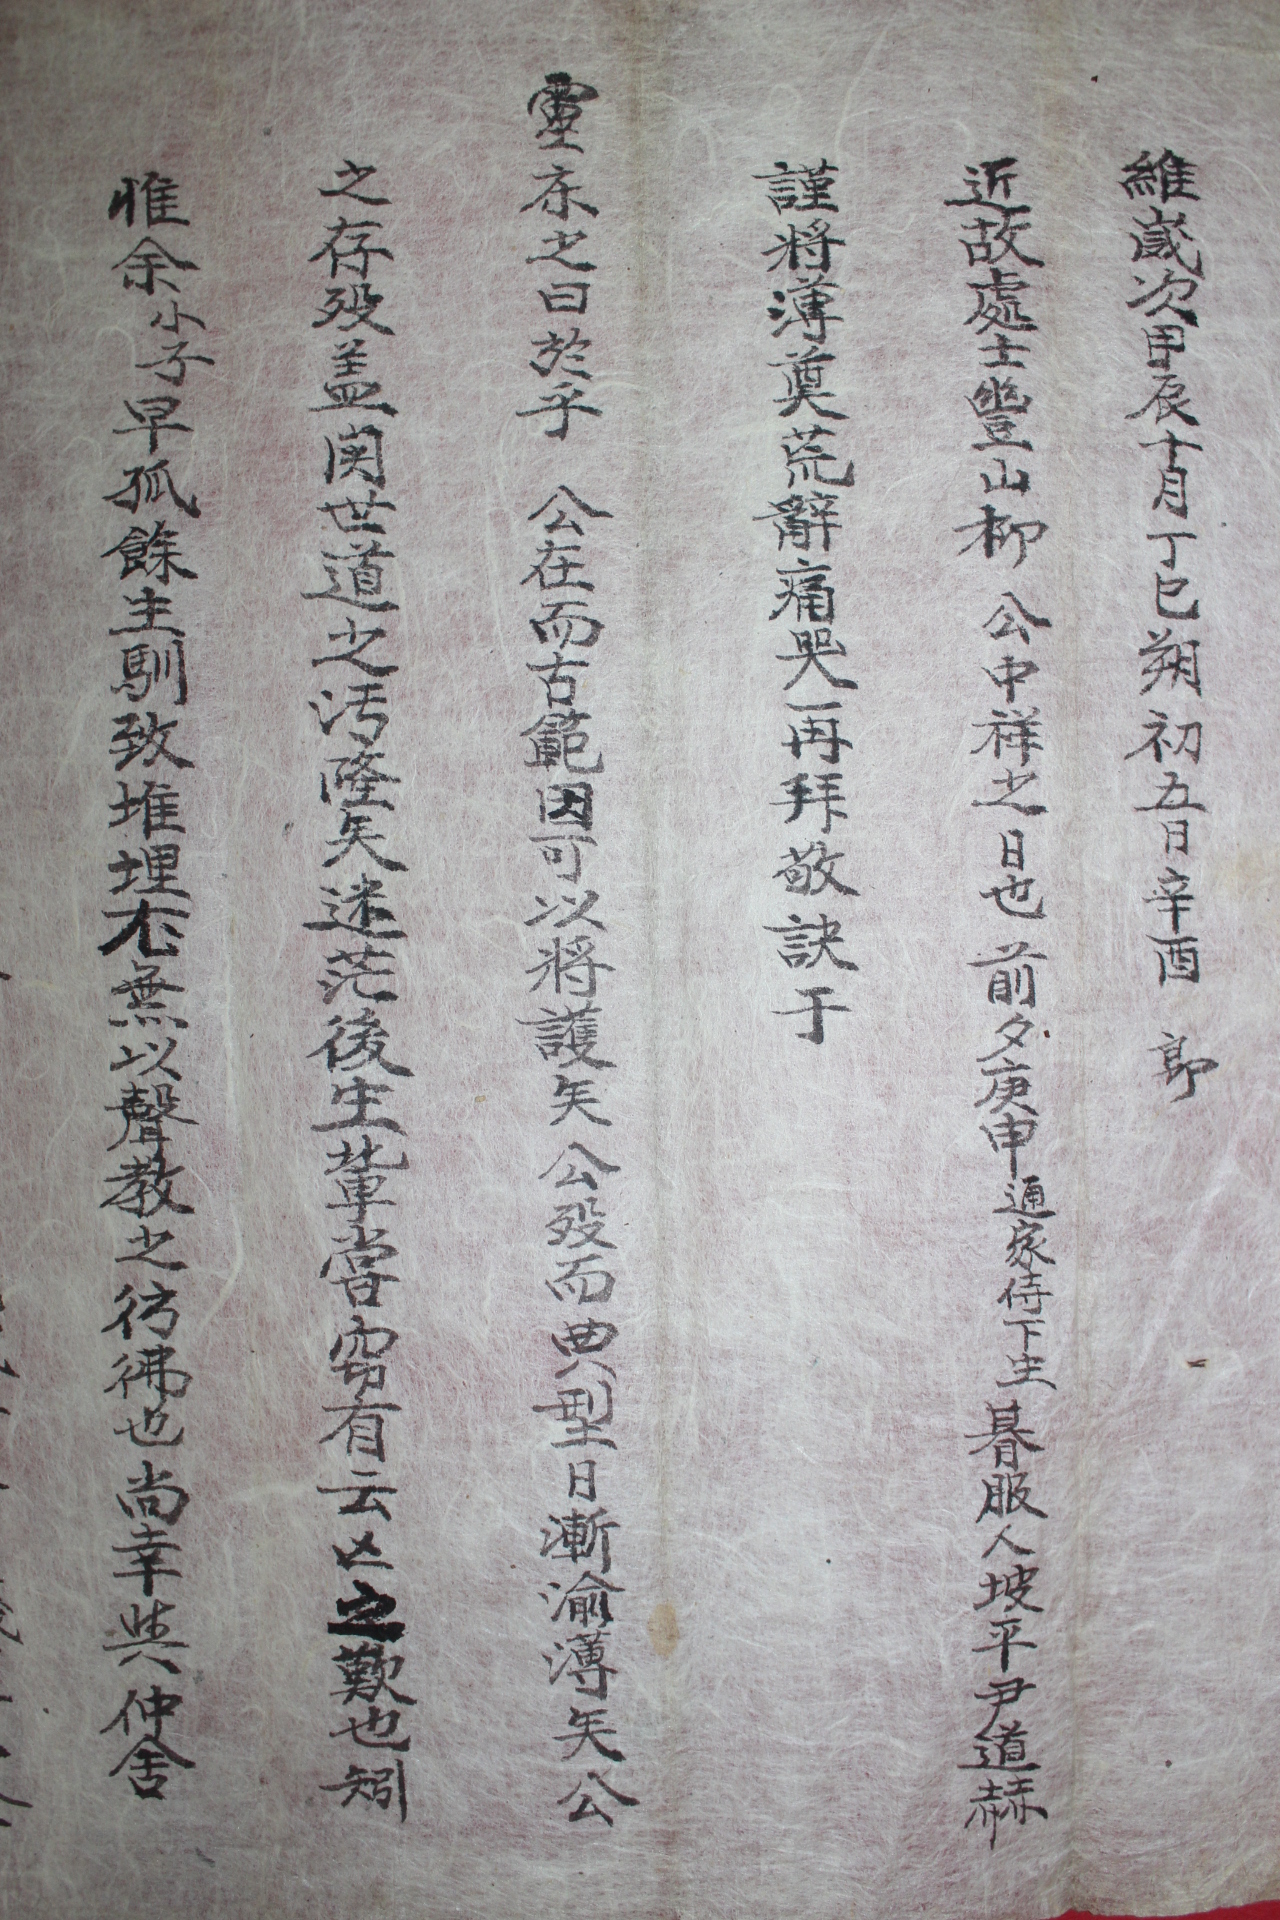 維歲次甲辰十月丁巳朔初五日辛酉 即
近故處士豐山柳 公中祥之日也前夕庚申通家侍下生朞服人坡平尹道赫
謹將薄奠荒辭痛哭再拜敬訣于
靈床之曰於乎 公在而古範因可以將護矣公歿而典型日漸渝薄矣公
之存歿盖関世道之汚隆矣迷茫後生輩嘗窃有云亡之歎也矧
惟余小子早孤餘生馴致堆埋不無以聲教之彷彿也尚幸與仲舍